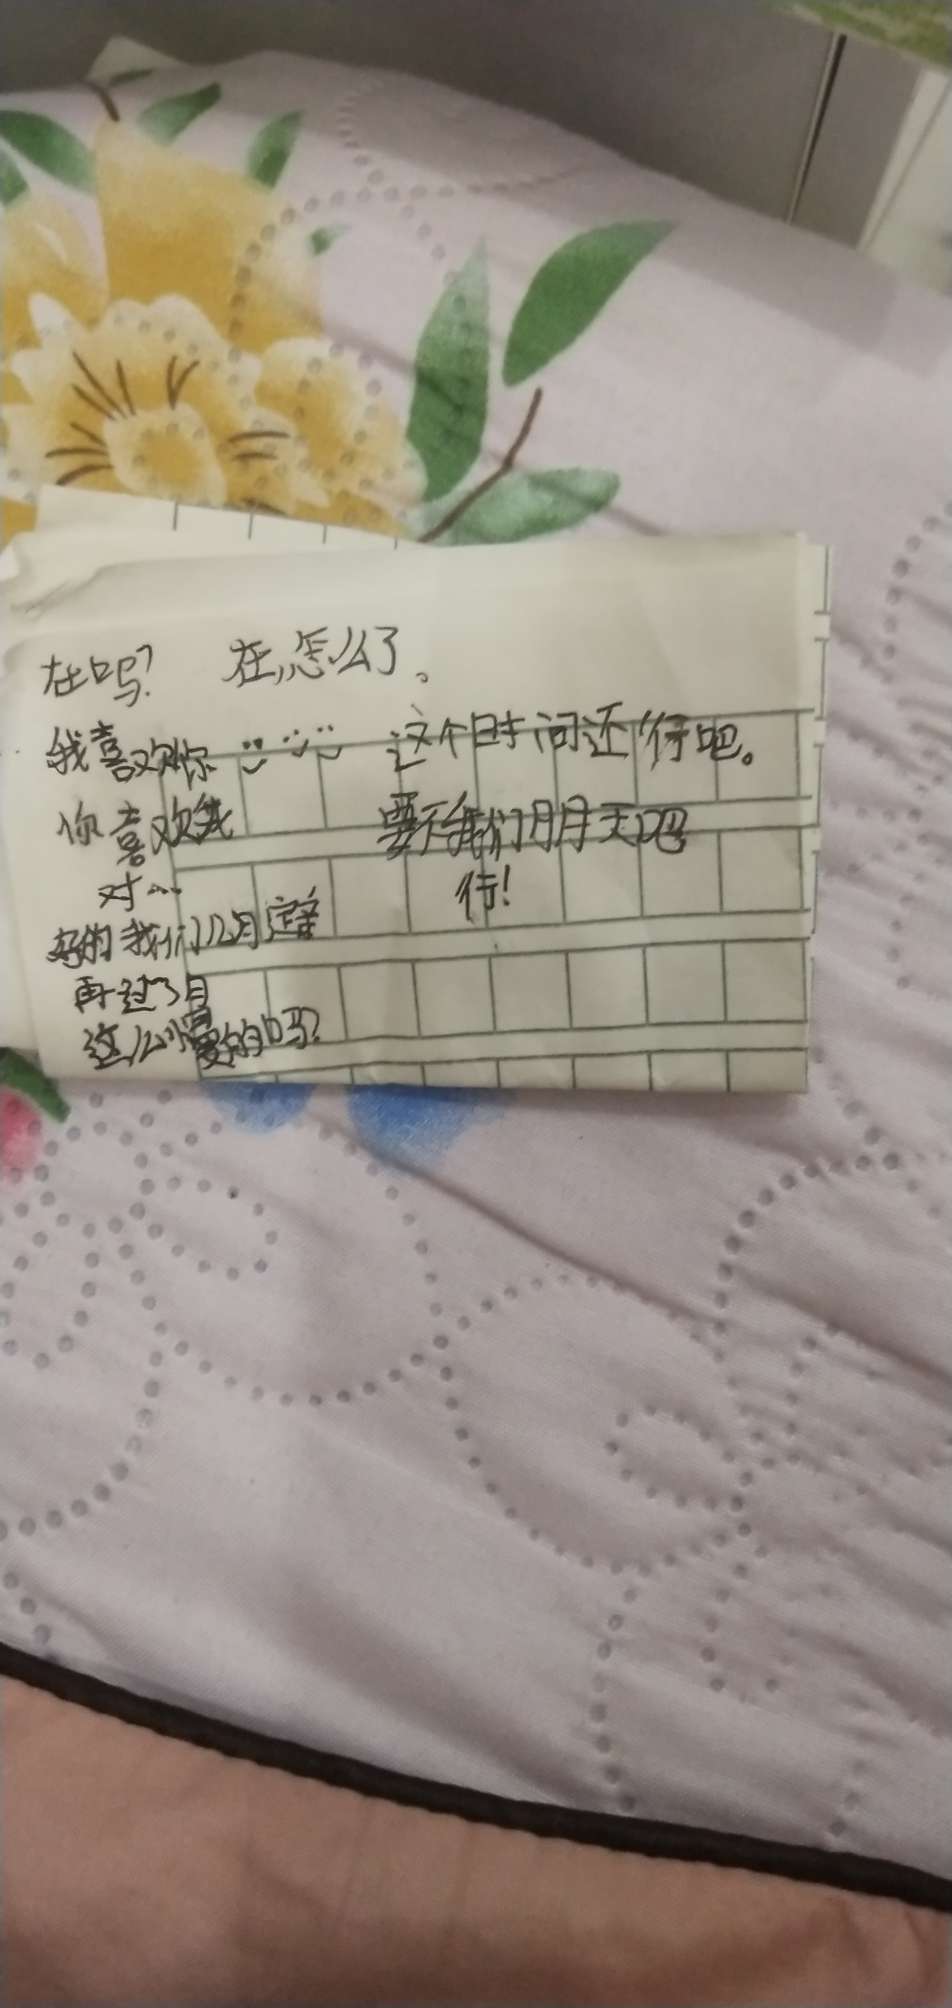 在吗? 在,怎么了。
我喜欢你 这个时间还行吧。
你喜欢我 要不我们明天吧
对... 行!
好的我们几月
再过3月
这么慢的吗?